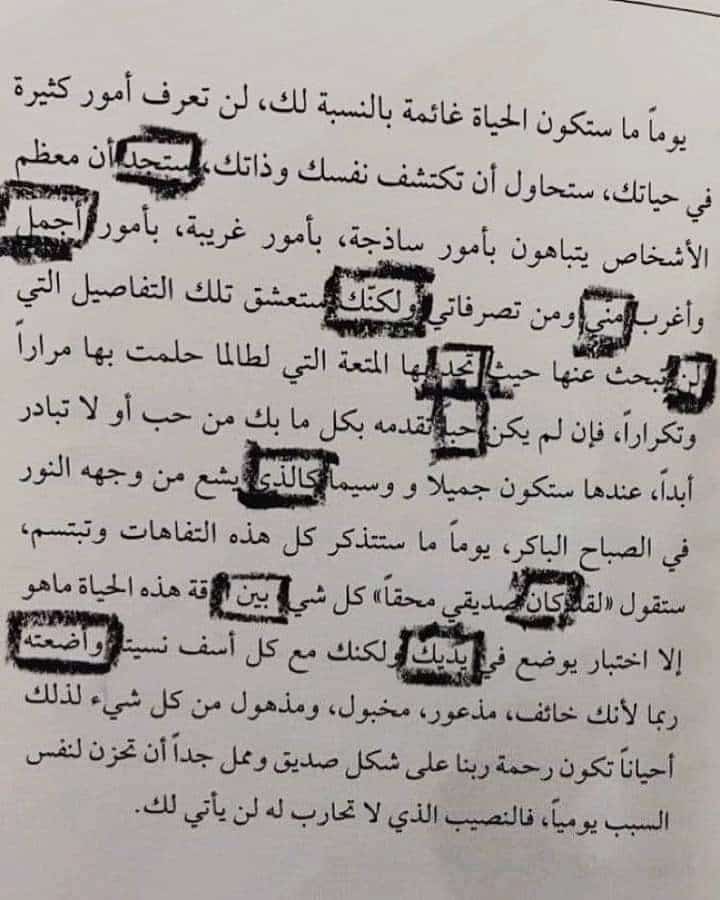 يوماً ما ستكون الحياة غائمة بالنسبة لك، لن تعرف أمور كثيرة
في حياتك، ستحاول أن تكتشف نفسك وذاتك، ستجد أن معظم
الأشخاص يتباهون بأمور ساذجة، بأمور غريبة، بأمور أجمل
وأغرب مني ومن تصرفاتي ولكنّك ستعشق تلك التفاصيل التي
لن تبحث عنها حيث تجد بها المتعة التي لطالما حلمت بها مراراً
وتكراراً، فإن لم يكن حباً تقدمه بكل ما بك من حب أو لا تبادر
أبداً، عندها ستكون جميلا و وسيما كالذي يشع من وجهه النور
في الصباح الباكر، يوماً ما ستتذكر كل هذه التفاهات وتبتسم،
ستقول «لقد كان صديقي محقاً» كل شي بين قة هذه الحياة ماهو
إلا اختبار يوضع في يديك ولكنك مع كل أسف نسيته وأضعته
ربما لأنك خائف، مذعور، مخبول، ومذهول من كل شيء لذلك
أحياناً تكون رحمة ربنا على شكل صديق وممل جداً أن تحزن لنفس
السبب يومياً، فالنصيب الذي لا تحارب له لن يأتي لك.